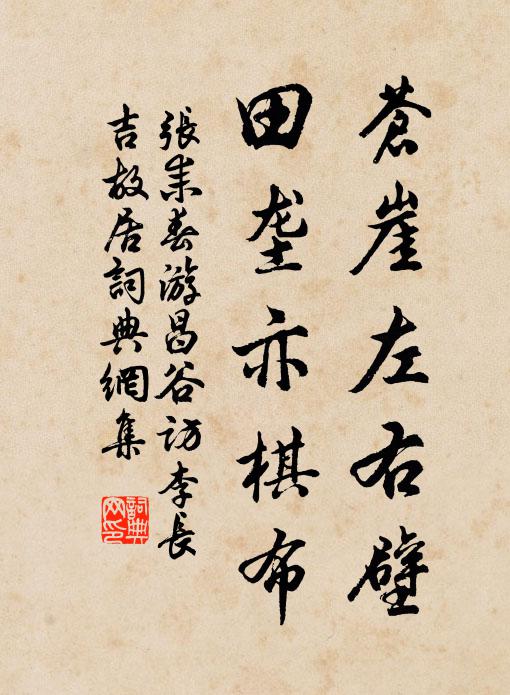 蒼崖左右壁
田垄亦棋布
張耒春游昌谷訪李長
吉故居詞典網集
詞典网印